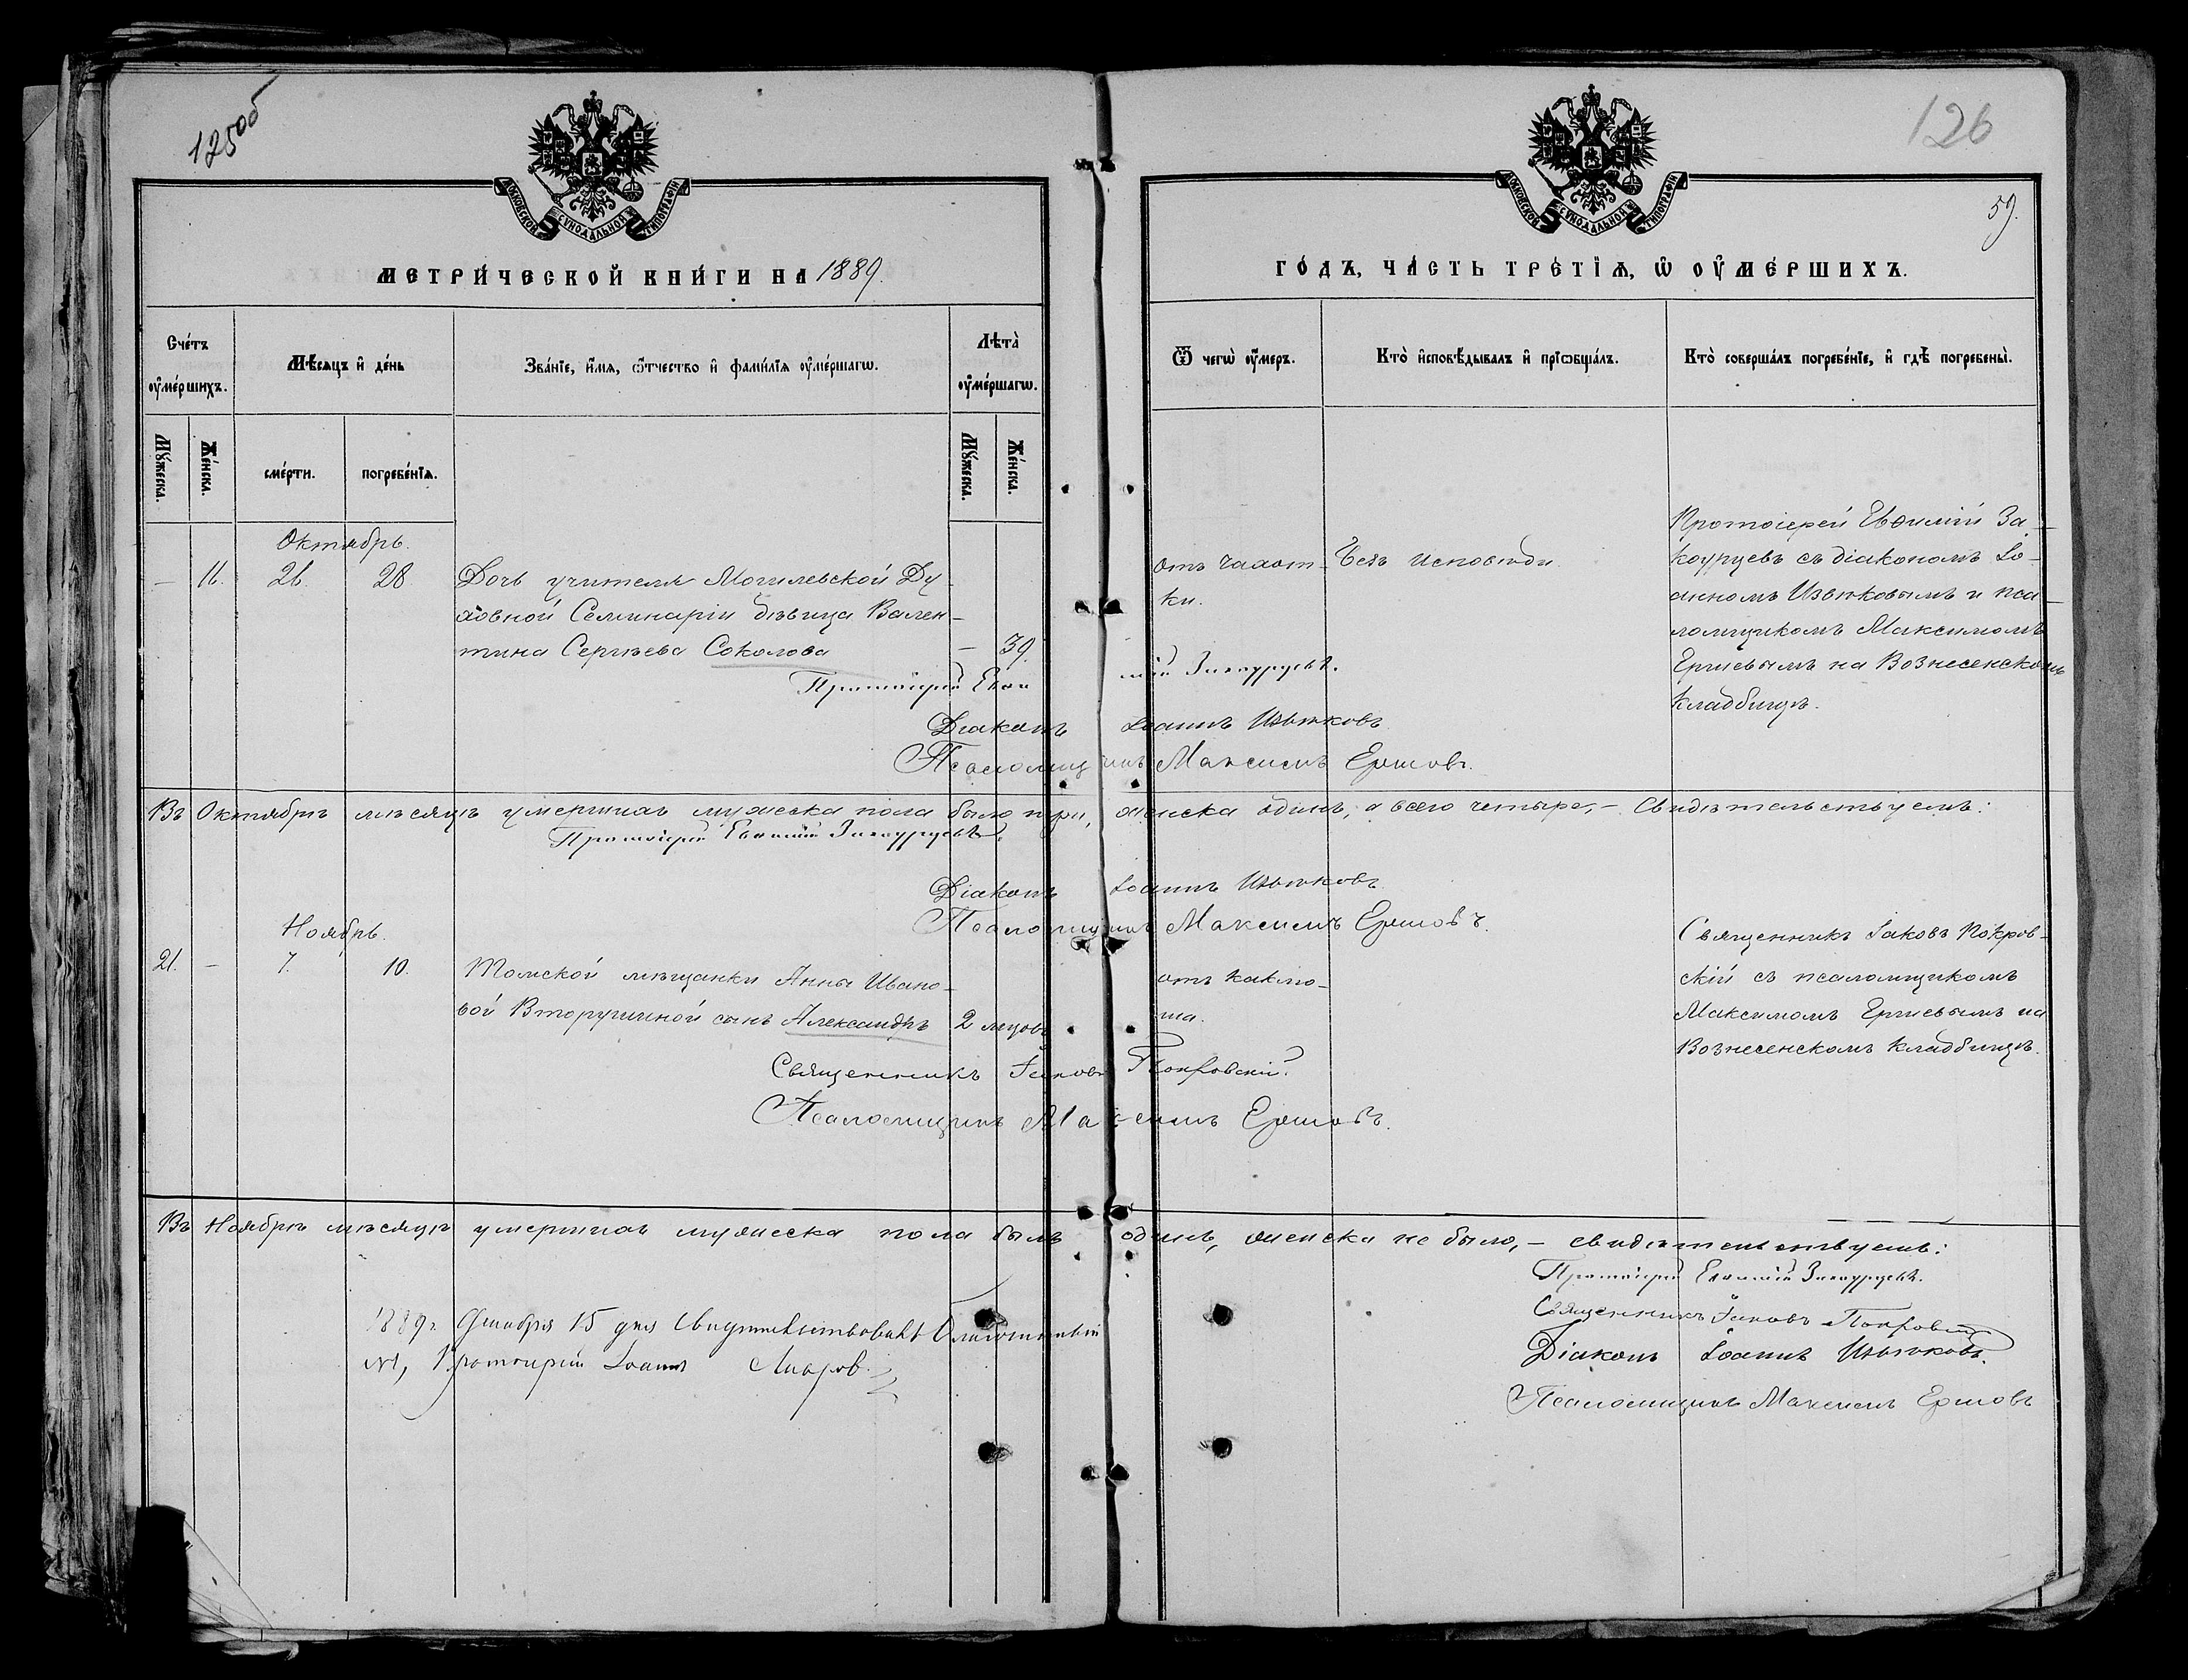 125об
126
МОСКОВСКОЙ СѴНОДАЛЬНОЙ ТИПОГРАФІИ
МОСКОВСКОЙ СѴНОДАЛЬНОЙ ТИПОГРАФІИ
59.
МЕТРИ́ЧЕСКОЙ КНИ́ГИ НА 1889.
ГО́ДЪ, ЧА́СТЬ ТРЕ́ТІѦ, Ѡ ОУ҆МЕ́РШИХЪ.
Сче́тъ оу҆ме́ршихъ.
Мѣ́сяцъ и҆ де́нь
Зва́нїе, и҆́мя, ѻ҆́тчество и҆ фами́лїя оу҆ме́ршагѡ.
Лѣ́та оу҆ме́ршагѡ.
Ѿ чегѡ̀ оу҆́меръ.
Кто̀ и҆сповѣ́дывалъ и҆ прїѡбща́лъ.
Кто̀ соверша́лъ погребе́нїе, и҆ гдѣ̀ погребены̀.
Мꙋ́жеска.
Же́нска.
сме́рти.
погребе́нїѧ.
Мꙋ́жеска.
Же́нска.
Октябрь.
— 11. 26. 28 Дочь учителя Могилевской Ду-
ховной Семинаріи дѣвица Вален-
тина Сергѣева Соколова — 39.
отъ чахот-
ки.
безъ исповѣди
Протоіерей Евѳимій За-
коурцевъ съ діакономъ Іо-
анномъ Извѣковымъ и пса-
ломщикомъ Максимомъ
Ершовымъ на Вознесенскомъ
кладбищѣ.
Протоіерей Евѳимій Закоурцевъ.
Діаконъ Іоаннъ Извѣковъ
Псаломщикъ Максимъ Ершовъ.
Въ Октябрѣ мѣсяцѣ умершихъ мужеска пола было три, женска одинъ, а всего четыре, — свидѣтельствуемъ:
Протоіерей Евѳимій Закоурцевъ.
Діаконъ Іоаннъ Извѣковъ
Псаломщикъ Максимъ Ершовъ.
Ноябрь.
21. — 7. 10. Томской мѣщанки Анны Ивано-
вой Вторушиной сынъ Александръ 2 мѣсяц.
отъ каклю-
ша.
Священникъ Іаковъ Покров-
скій съ псаломщикомъ
Максимомъ Ершовымъ на
Вознесенскомъ кладбищѣ.
Священникъ Іаковъ Покровскій.
Псаломщикъ Максимъ Ершовъ.
Въ Ноябрѣ мѣсяцѣ умершихъ мужеска пола былъ одинъ, женска не было, — свидѣтельствуемъ:
Протоіерей Евѳимій Закоурцевъ.
Священникъ Іаковъ Покровскій
Діаконъ Іоаннъ Извѣковъ.
Псаломщикъ Максимъ Ершовъ
1889 г. Декабря 15 дня свидѣтельствовалъ Благочинный
№1, Протоіерей Іоаннъ